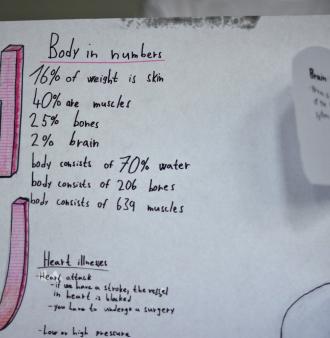 Body in numbers
16% of weight is skin
40% are muscles
25% bones
2% brain
body consists of 70% water
body consists of 206 bones
body consists of 639 muscles
Heart illnesses
Heart attack
- if we have a stroke, the vessel
in heart is blocked
- you have to undergo a surgery
- Low or high pressure
Brain